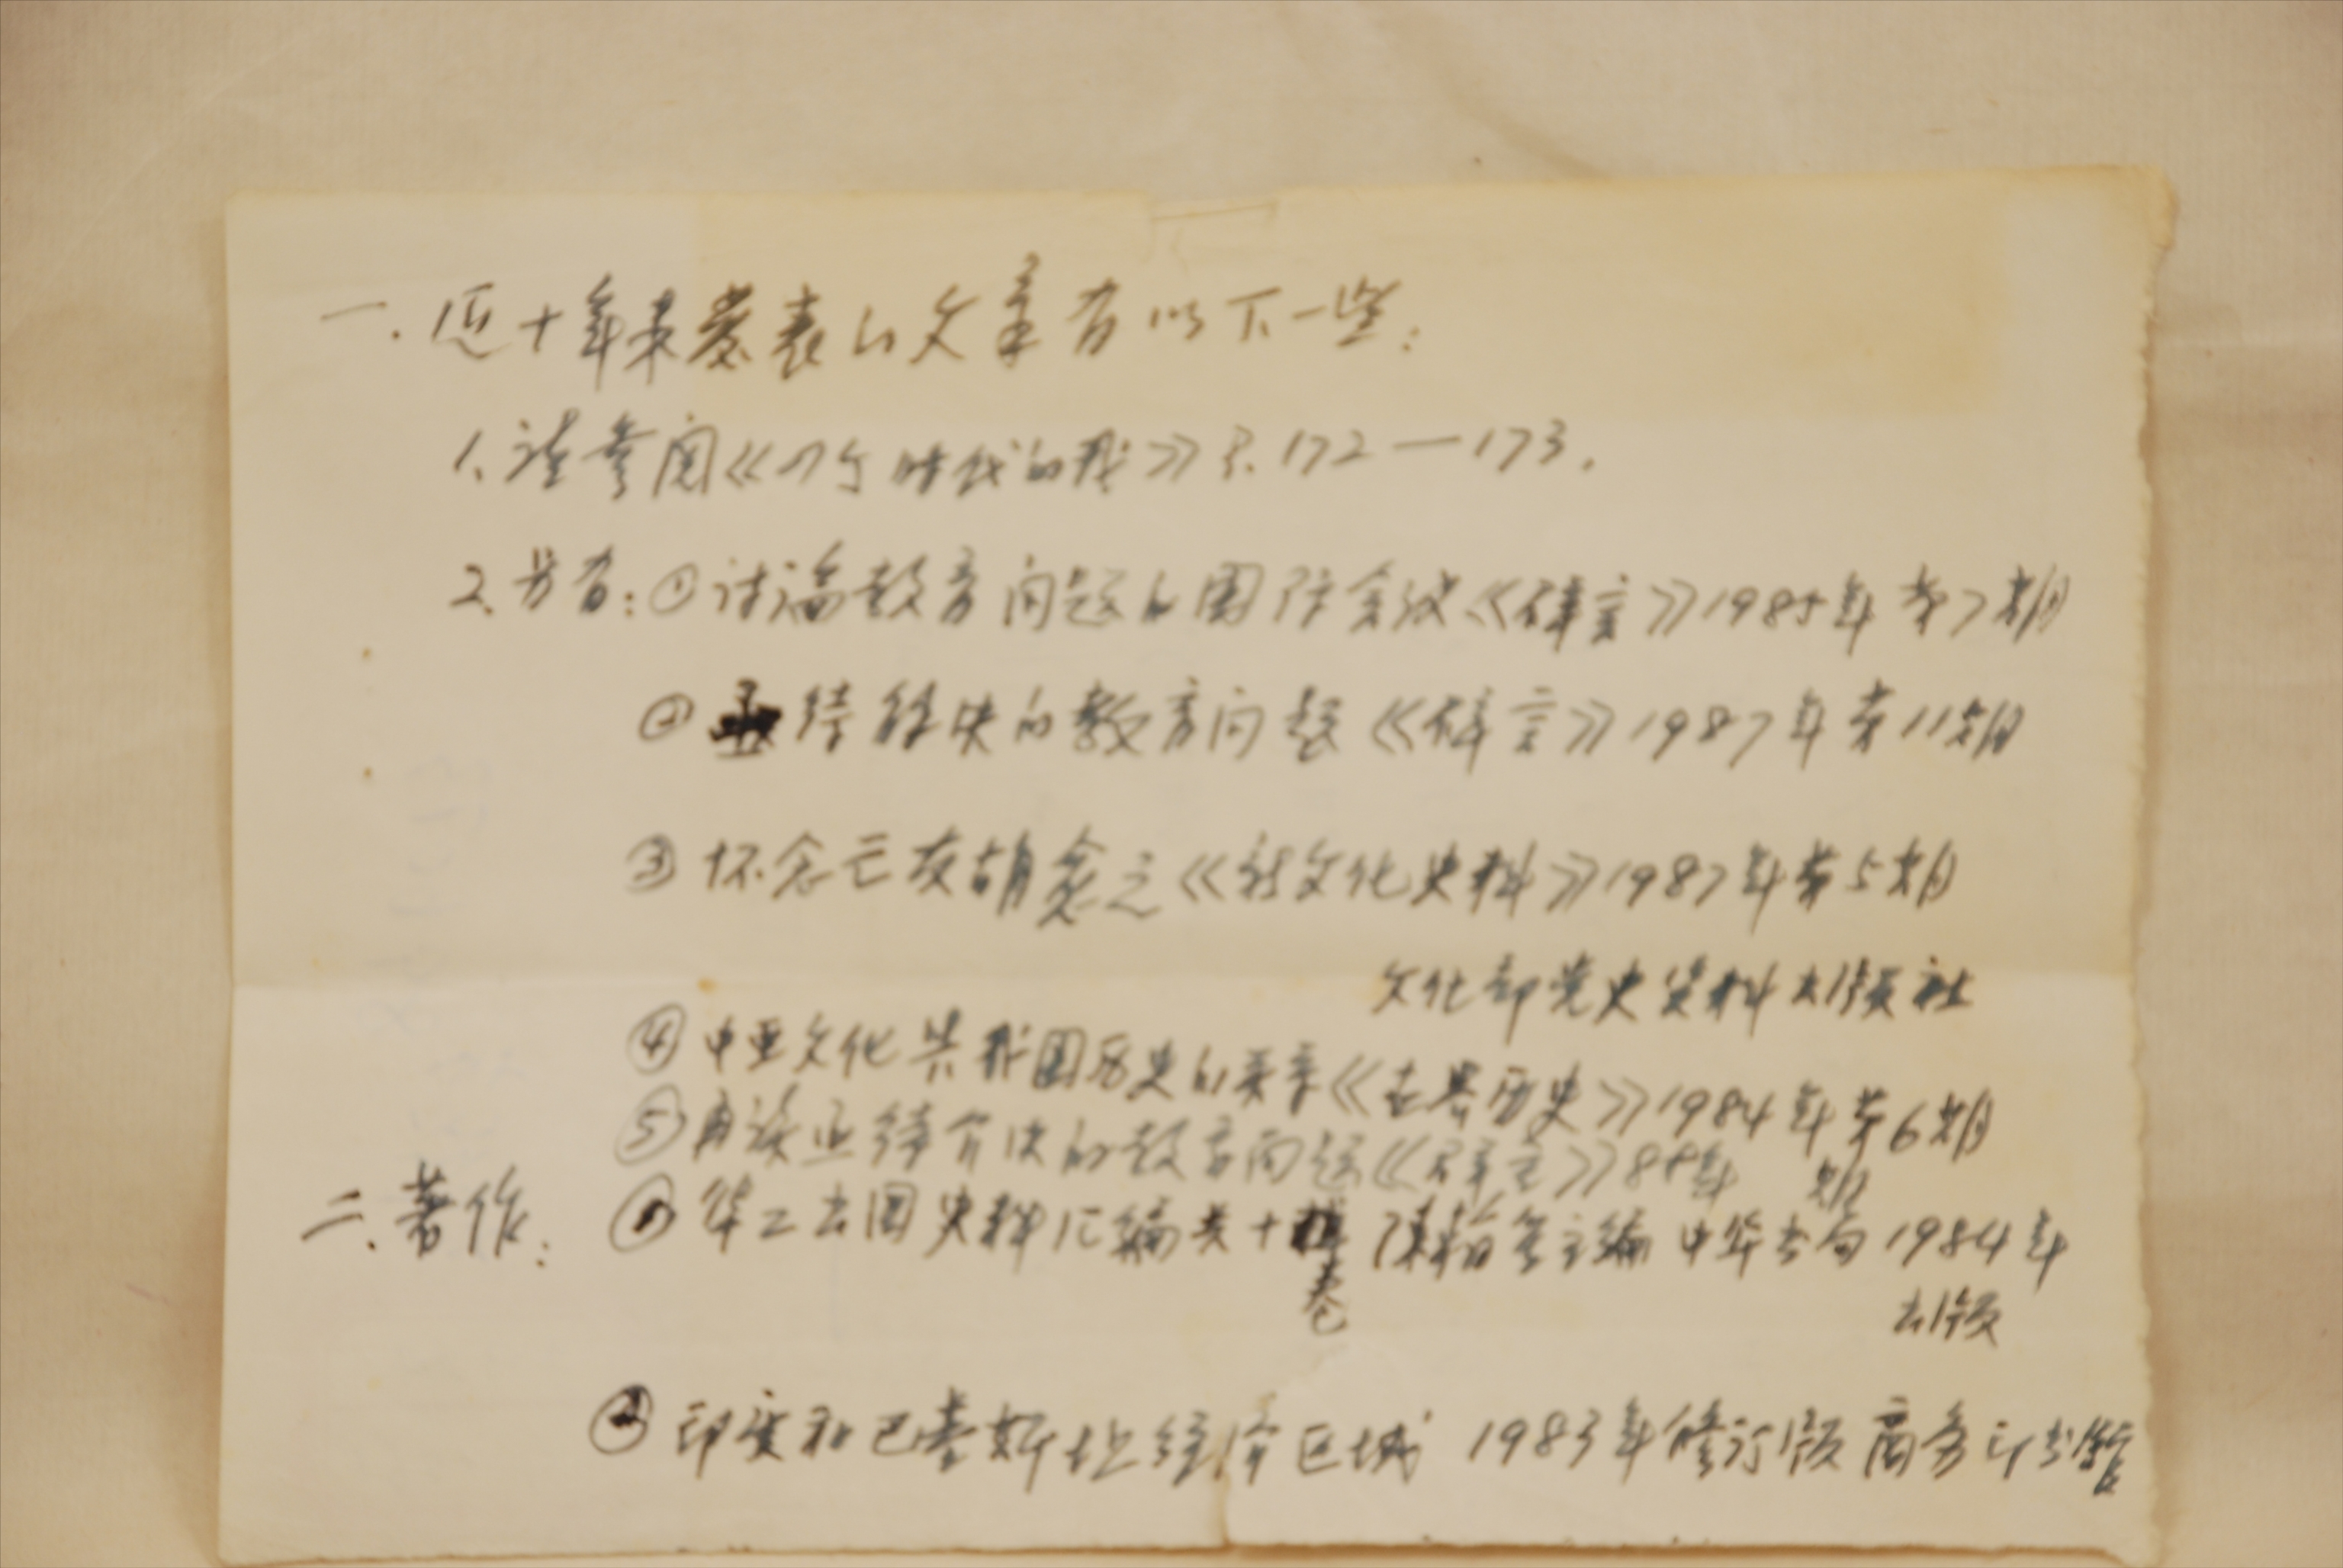 一.近十年来发表的文章有以下一些:
1.请参阅《四个时代的我》P.172—173.
2.另有:①讨论教育问题的国际会议《群言》1985年第7期
②亟待解决的教育问题《群言》1987年第11期
③怀念亡友胡愈之《新文化史料》1987年第5期
文化部党史资料出版社
④中亚文化与我国历史的关系《世界历史》1984年第6期
⑤再谈亟待解决的教育问题《群言》88年 期
二.著作:①华工出国史料汇编共十辑 陈翰笙主编 中华书局 1984年
卷
出版
②印度和巴基斯坦经济区域 1983年修订版 商务印书馆